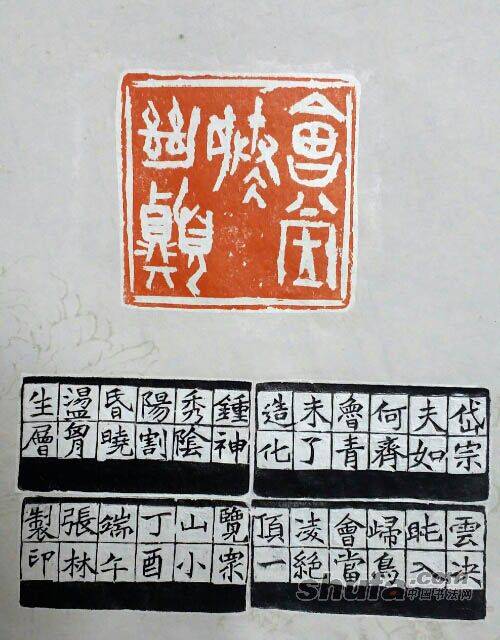 會當
凌
絕頂
岱宗
夫如
何齊
魯青
未了
造化
鍾神
秀陰
陽割
昏曉
盪胷
生層
雲決
眦入
歸鳥
會當
凌絕
頂一
覽衆
山小
丁酉
端午
張林
製印
shufa.com
中国书法网